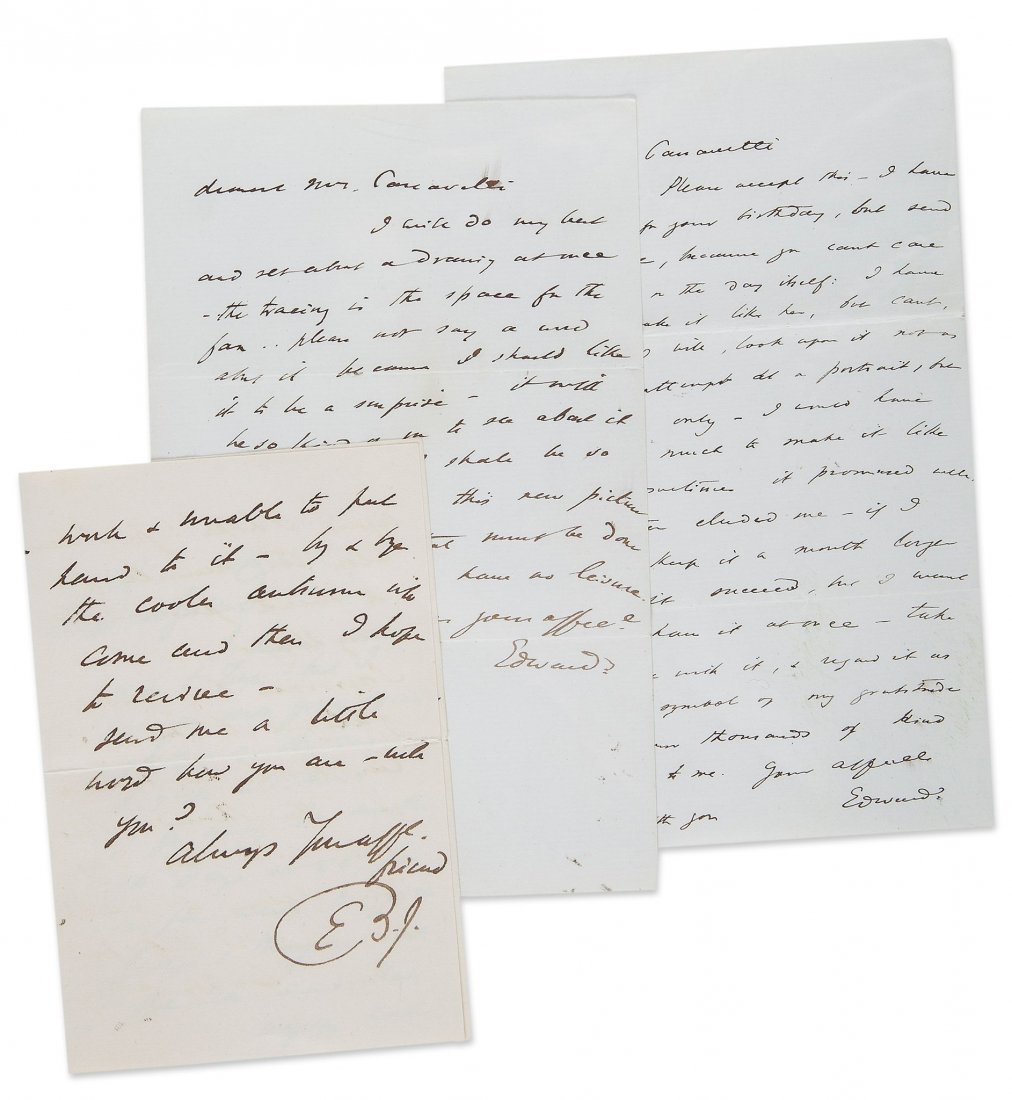 dearest Mrs. Cassavetti
I will do my best
and set about a drawing at once
- the tracing is the space for the
fan .. please not say a word
about it because I should like
it to be a surprise - it will
be so kind to see about it
shall be so
this new picture
must be done
have no leisure.
your affec:
Edward:
Cassavetti
Please accept this - I have
for your birthday, but send
, because you cant care
on the day itself: I have
make it like her, but cant,
will, look upon it not as
attempt at a portrait, but
only - I would have
much to make it like
sometimes it promised well.
eluded me - if I
keep it a month longer
it succeed, but I want
have it at once - take
with it, & regard it as
symbol of my gratitude
thousands of kind
to me. Your affec:
Edward:
with you
work & unable to put
hand to it - by & bye
the cooler autumn will
come and then I hope
to revive -
send me a little
word how you are - will
you?
always Your affte.
friend
E B.J.